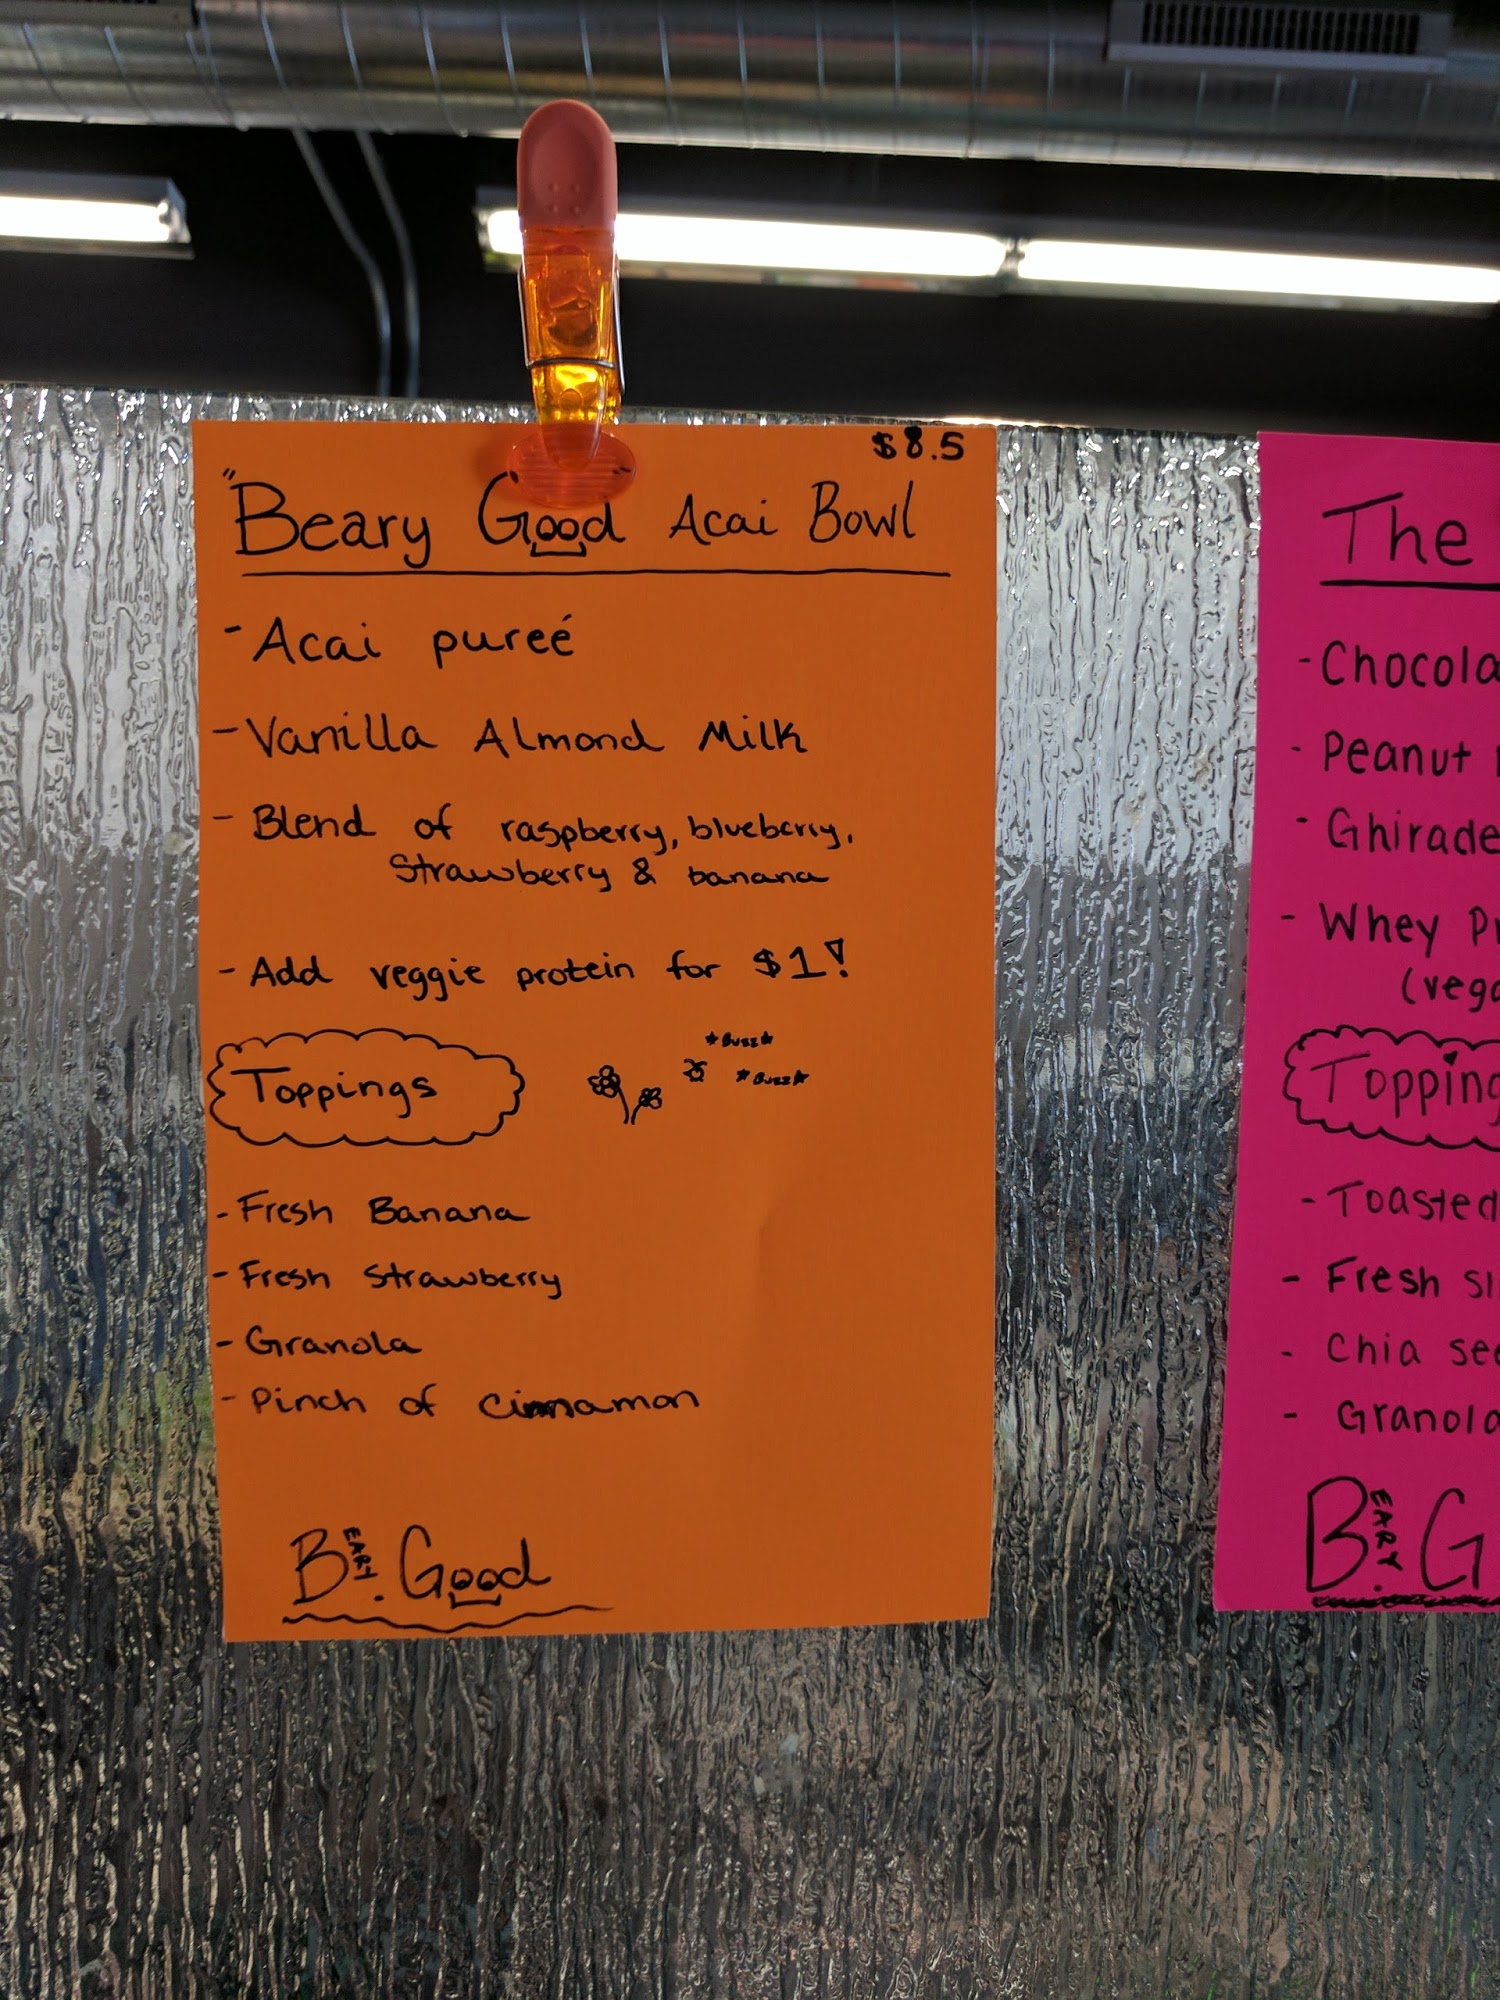 $8.5
"Beary Good" Acai Bowl
- Acai pureé
- Vanilla Almond Milk
- Blend of raspberry, blueberry,
strawberry & banana
- Add veggie protein for $1!
Toppings
*Buzz*
*Buzz*
- Fresh Banana
- Fresh Strawberry
- Granola
- Pinch of cinnamon
BEARY. Good
The
- Chocola
- Peanut
- Ghirade
- Whey Pr
(vega
Topping
- Toasted
- Fresh sl
- Chia see
- Granola
BEARY. G